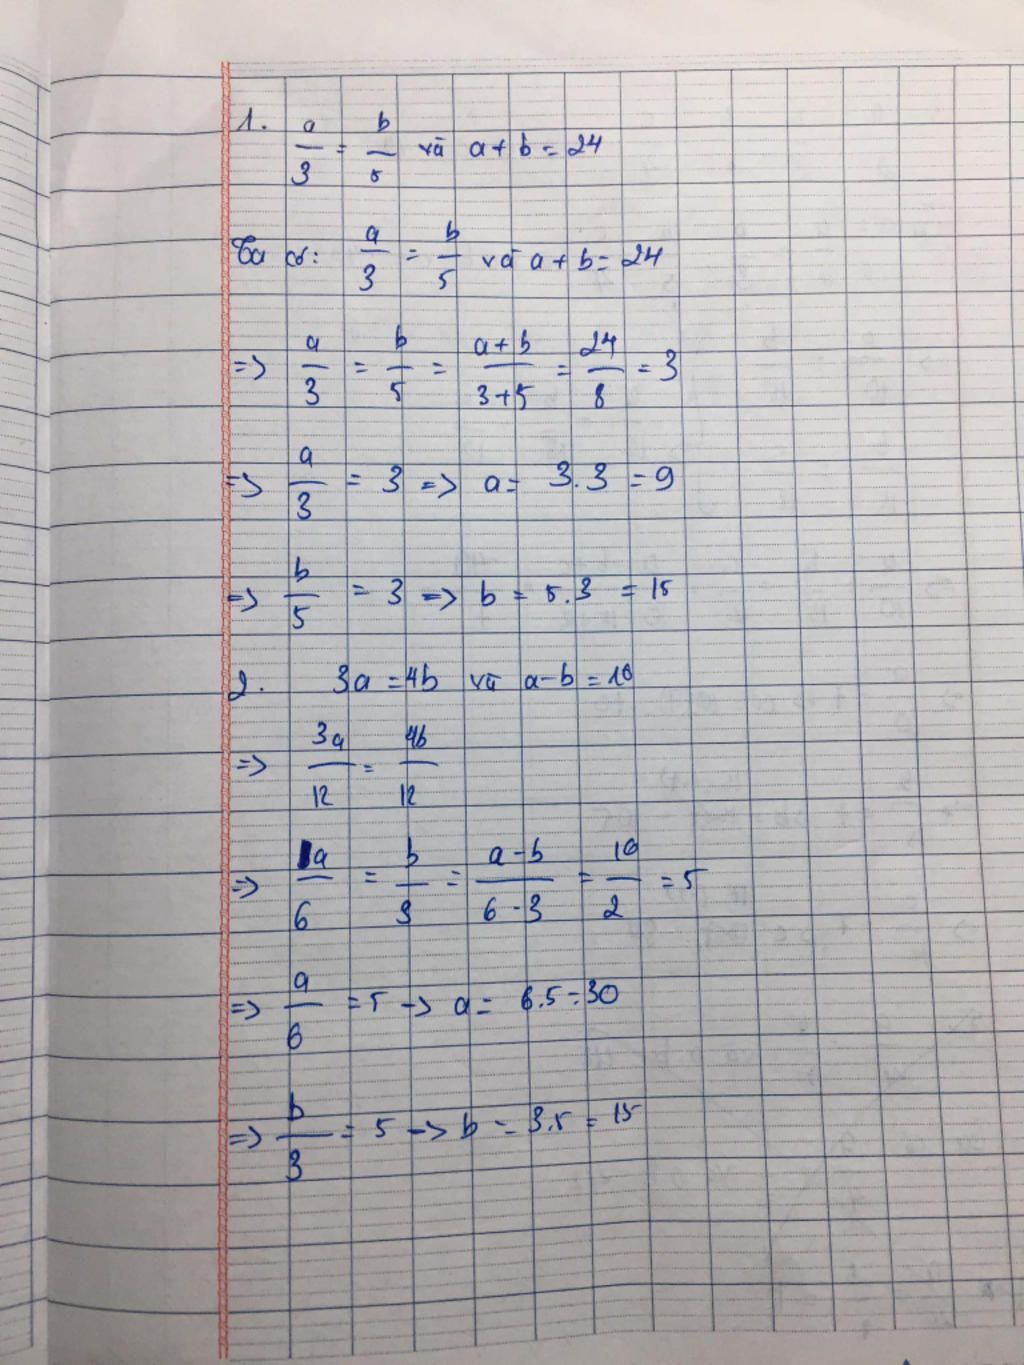 1. a/3 = b/5 và a + b = 24
Ta có: a/3 = b/5 và a + b = 24
=> a/3 = b/5 = a+b/3+5 = 24/8 = 3
=> a/3 = 3 => a = 3.3 = 9
=> b/5 = 3 => b = 5.3 = 15
2. 3a = 4b và a-b = 10
=> 3a/12 = 4b/12
=> a/6 = b/3 = a-b/6-3 = 10/2 = 5
=> a/6 = 5 -> a = 6.5 = 30
=> b/3 = 5 -> b = 3.5 = 15